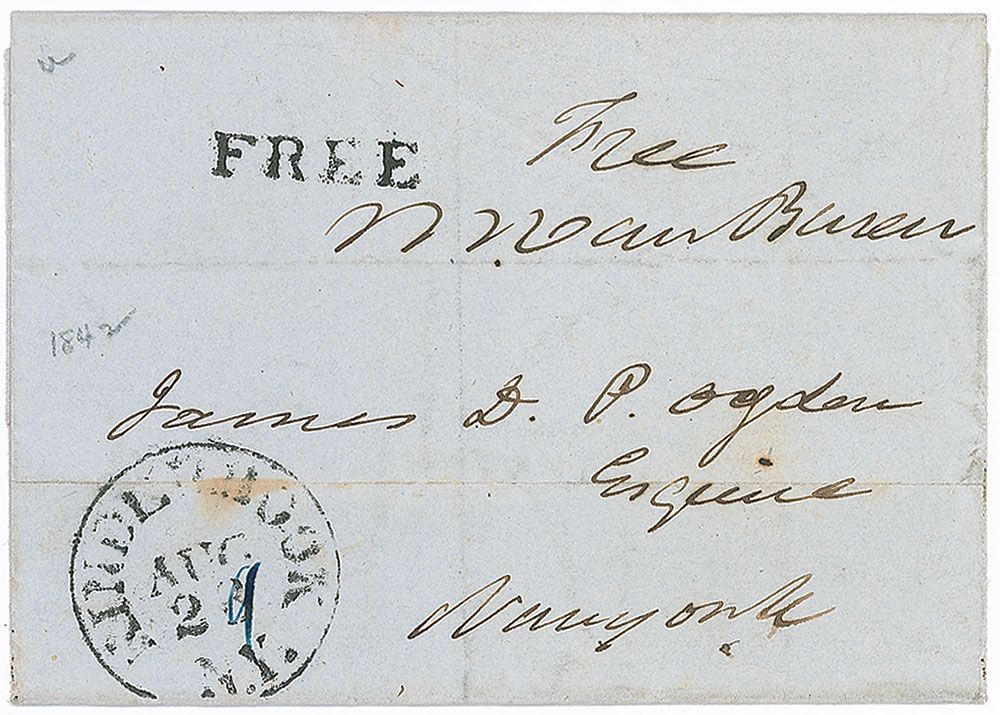 FREE
Free
M Van Buren
1842
James D. P. Ogden
Esquire
New york
KINDERHOOK
AUG
29
N.Y.